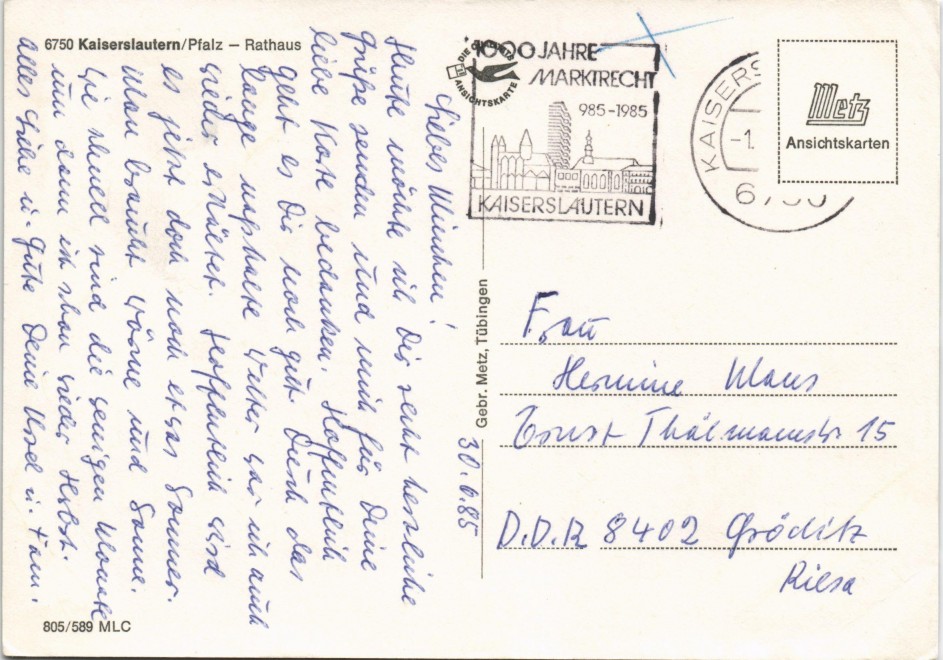 6750 Kaiserslautern/Pfalz – Rathaus
30.6.85
Liebes Minchen!
Heute möchte ich Dir recht herzliche
Grüße senden und mich für Deine
liebe Karte bedanken. Hoffentlich
geht es Dir noch gut. Durch das
lange naßkalte Wetter war ich auch
wieder erkältet. Hoffentlich wird
es jetzt doch noch etwas Sommer.
Man braucht Wärme und Sonne.
Wie schnell sind die wenigen Monate
um dann ist schon wieder Herbst.
Alles Liebe u. Gute Deine Ursel u. Fam.
805/589 MLC
Gebr. Metz, Tübingen
DIE GRÜNE
ANSICHTSKARTE
1000 JAHRE
MARKTRECHT
985-1985
KAISERSLAUTERN
KAISERS
-1.
6750
Metz
Ansichtskarten
Frau
Hermine Maus
Ernst Thälmannstr. 15
D.D.R 8402 Gröditz
Riesa